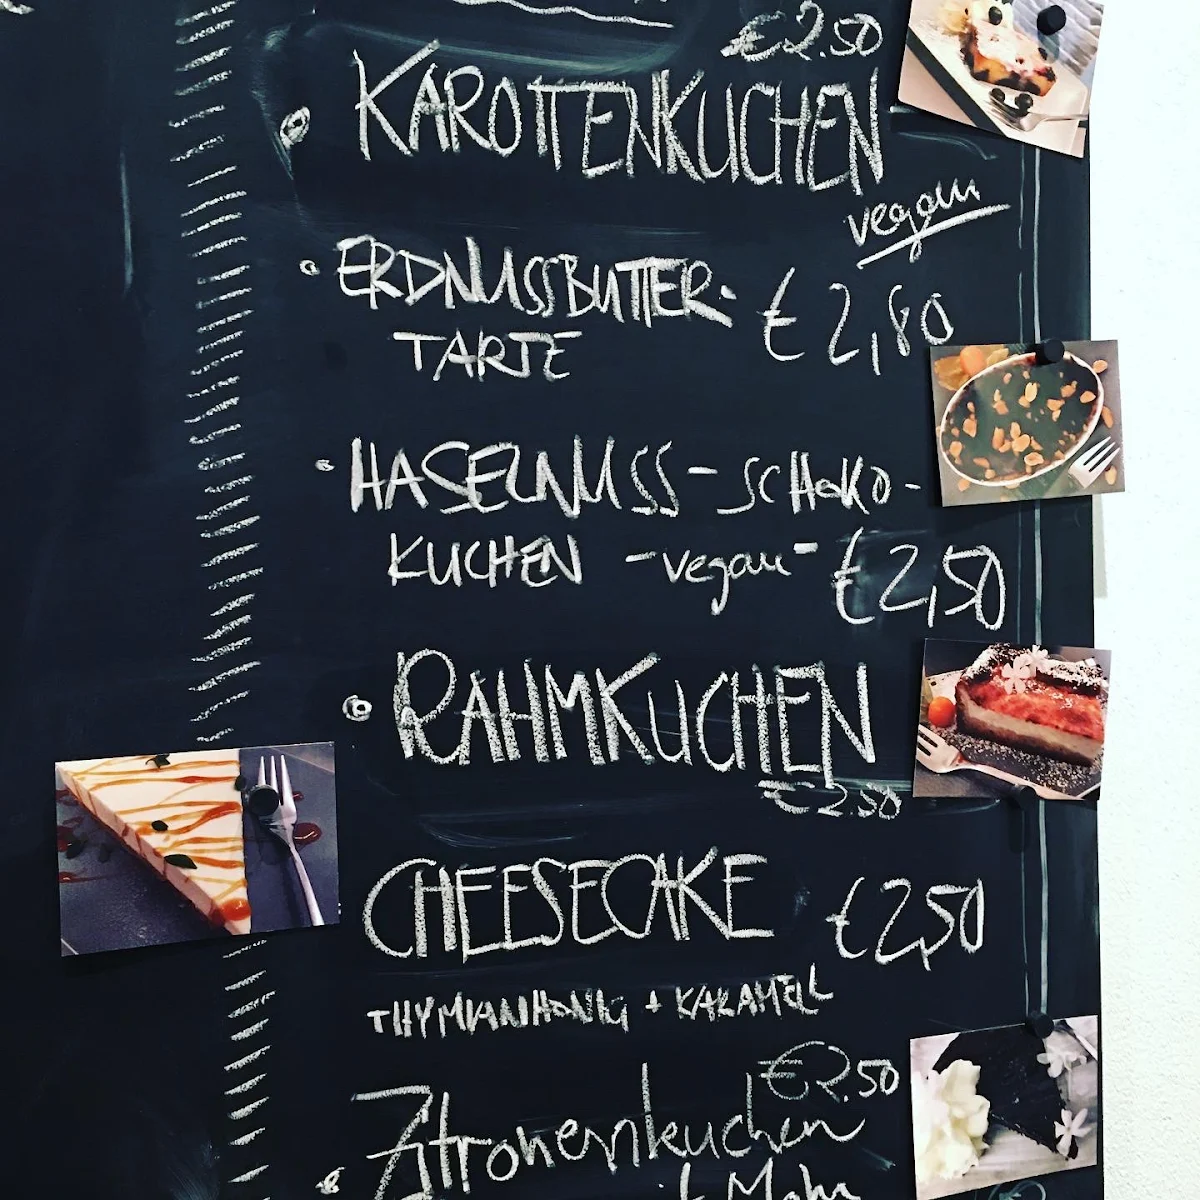 €2.50
KAROTTENKUCHEN
vegan
ERDNUSSBUTTER-
TARTE
€2,80
HASELNUSS-SCHOKO-
KUCHEN -vegan- €2,50
RAHMKUCHEN
€2.50
CHEESECAKE €2,50
THYMIANHONIG + KARAMELL
€2.50
Zitronenkuchen
Mohn